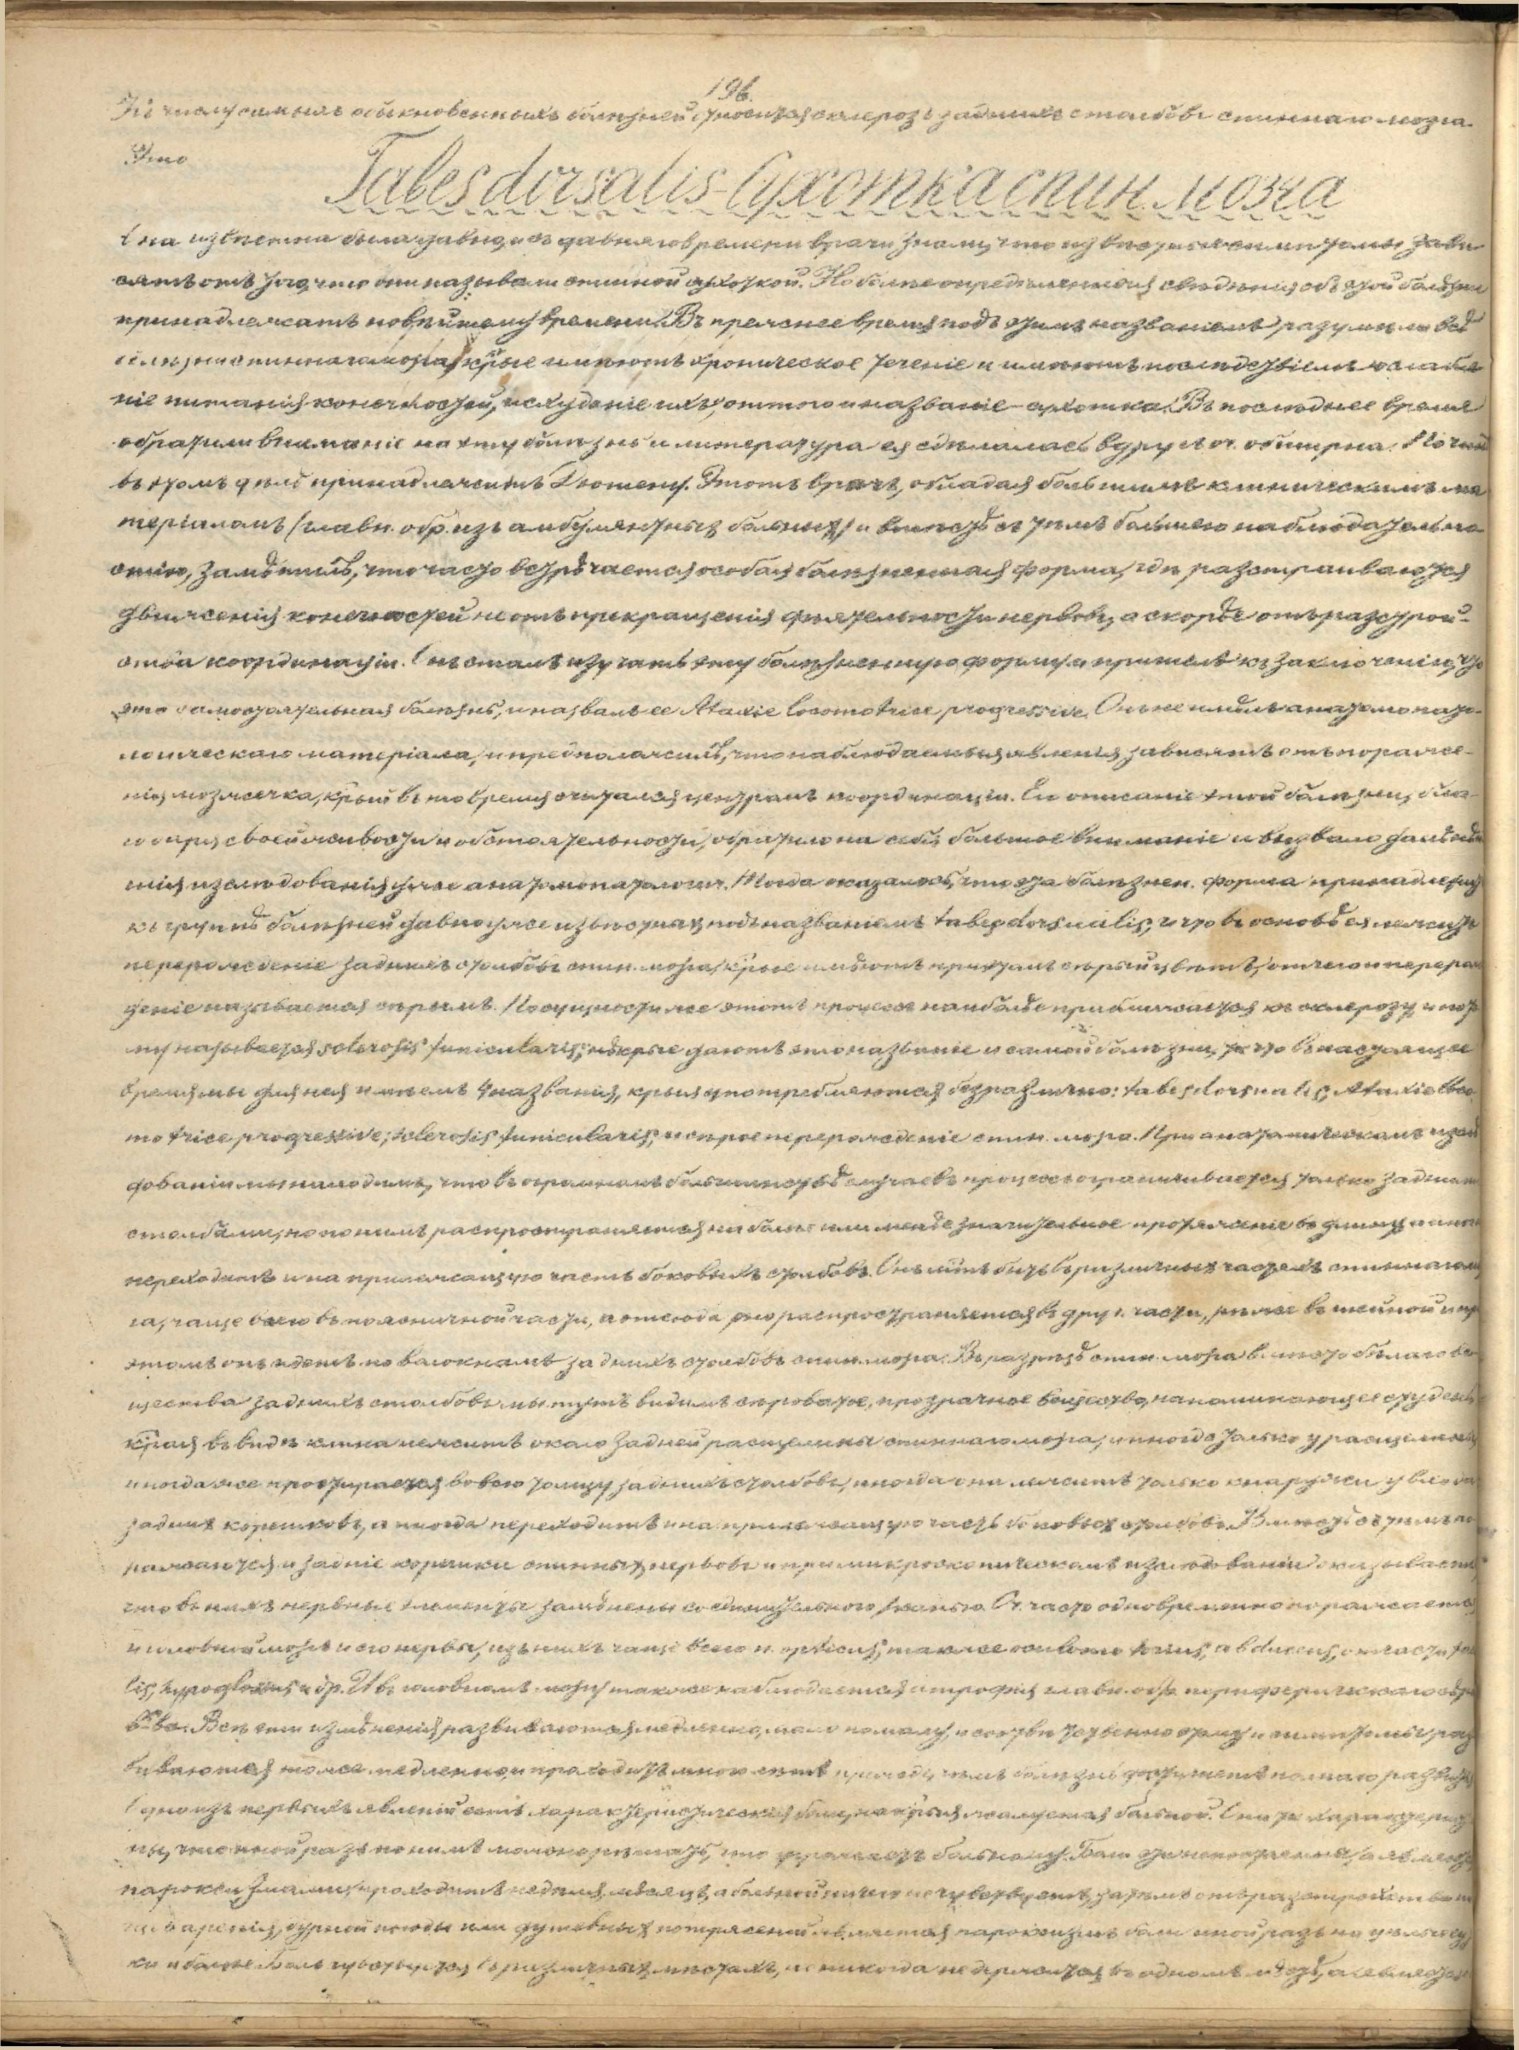 196.
Къ числу самыхъ обыкновенныхъ болѣзней относится склерозъ заднихъ столбовъ спиннаго мозга.
Это
Tabes dorsalis - Сухотка спин. мозга
Она извѣстна была издавна, и съ давняго времени врачи знали, что извѣстные симптомы зави-
сятъ отъ того, что они называли спинной сухоткой. Но болѣе опредѣленныя свѣдѣнія объ этой болѣзни
принадлежатъ новѣйшему времени. Въ прежнее время подъ этимъ названіемъ разумѣли всѣ
болѣзни спиннаго мозга, крые имѣютъ хроническое теченіе и имѣютъ послѣдствіемъ ослабле-
ніе питанія конечностей, исхуданіе ихъ, оттого и названіе - сухотка. Въ послѣднее время
обратили вниманіе на эту болѣзнь и литература ея сдѣлалась вдругъ оч. обширна. Починъ
въ этомъ дѣлѣ принадлежитъ Дюшену. Этотъ врачъ, обладая большимъ клиническимъ ма-
теріаломъ (главн. обр. изъ амбулянтныхъ больныхъ) и вмѣстѣ съ тѣмъ большею наблюдательно-
стію, замѣтилъ, что часто встрѣчается особая болѣзненная форма, гдѣ разстраиваются
движенія конечностей не отъ прекращенія дѣятельности нервовъ, а скорѣе отъ разстрой-
ства координаціи. Онъ сталъ изучать эту болѣзненную форму и пришелъ къ заключенію, что
это самостоятельная болѣзнь, и назвалъ ее Ataxie locomotrice progressive. Онъ не имѣлъ анатомопато-
логическаго матеріала, и предположилъ, что наблюдаемыя явленія зависятъ отъ пораже-
нія мозжечка, крый въ то время считался центромъ координаціи. Его описаніе этой болѣзни, бла-
годаря своей живости и обстоятельности, обратило на себя большое вниманіе и вызвало дальнѣй-
шія изслѣдованія уже анатомопатологич. Тогда оказалось, что эта болѣзнен. форма принадлежитъ
къ группѣ болѣзней давно уже извѣстныхъ подъ названіемъ tabes dorsualis, и что въ основѣ ея лежитъ
перерожденіе заднихъ столбовъ спин. мозга, крые имѣютъ при этомъ сѣрый цвѣтъ, отчего и перерож-
деніе называется сѣрымъ. По сущности же этотъ процессъ наиболѣе приближается къ склерозу и пото
му называется sclerosis funicularis; нѣкрые даютъ это названіе и самой болѣзни, такъ что въ настоящее
время мы для нея имѣемъ 4 названія, крыя употребляются безразлично: tabes dorsualis, Ataxie loco-
motrice progressive, sclerosis funicularis, и сѣрое перерожденіе спин. мозга. При анатомическомъ изслѣ
дованіи мы находимъ, что въ огромномъ большинствѣ случаевъ процессъ ограничивается только задними
столбами, но по нимъ распространяется на болѣе или менѣе значительное протяженіе въ длину и иногда
переходитъ и на прилежащую часть боковыхъ столбовъ. Онъ мтъ быть въ различныхъ частяхъ спиннаго моз
га, чаще всего въ поясничной части, а отсюда оно распространяется въ друг. части, рѣже въ шейной и при
этомъ онъ идетъ по волокнамъ заднихъ столбовъ спин. мозга. Въ разрѣзѣ спин. мозга вмѣсто бѣлаго ве
щества заднихъ столбовъ мы тутъ видимъ сѣроватое, прозрачное вещество, напоминающее студень,
края въ видѣ клина лежитъ около задней расщелины спиннаго мозга, иногда только у расщелины,
иногда же простирается во всю толщу заднихъ столбовъ, иногда она лежитъ только снаружи у входа
заднихъ корешковъ, а иногда переходитъ и на прилежащую часть боковыхъ столбовъ. Вмѣстѣ съ тѣмъ по
ражаются и задніе корешки спинныхъ нервовъ и при микроскопическомъ изслѣдованіи оказывается,
что въ нихъ нервные элементы замѣнены соединительною тканью. Оч. часто одновременно поражается
и головной мозгъ и его нервы, изъ нихъ чаще всего n. opticus, также oculomotorius, abducens, отчасти facia
lis, hypoglossus и др. И въ головномъ мозгу также наблюдается атрофія главн. обр. периферическаго сѣраго
в-ва. Всѣ эти измѣненія развиваются медленно, мало по малу, и соотвѣтственно этому и симптомы раз
виваются тоже медленно, и проходитъ много лѣтъ прежде, чѣмъ болѣзнь достигнетъ полнаго развитія.
Одно изъ первыхъ явленій есть характеристическія боли, на крыя жалуется больной. Они такъ характерич
ны, что иной разъ по нимъ можно рѣшать, что угрожаетъ больному. Боли эти непостоянны, а являются
пароксизмами, проходитъ недѣля, мѣсяцъ, а больной ничего не чувствуетъ, затѣмъ отъ разстройства пи
щеваренія, дурной погоды или душевныхъ потрясеній является пароксизмъ боли иной разъ на цѣлыя сут
ки и болѣе. Боль чувствуется въ различныхъ мѣстахъ, и никогда не держится въ одномъ мѣстѣ, а является